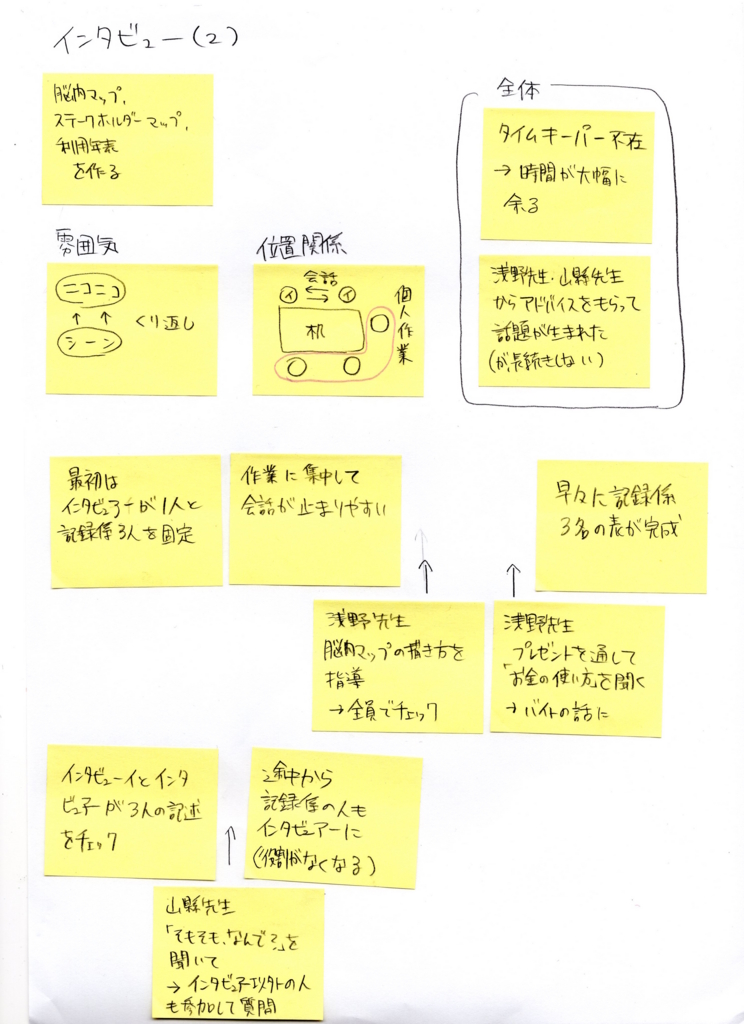 インタビュー(2)
脳内マップ,
ステークホルダーマップ,
利用年表
を作る
全体
タイムキーパー不在
→ 時間が大幅に
余る
浅野先生・山縣先生
からアドバイスをもらって
話題が生まれた
(が、長続きしない)
雰囲気
ニコニコ
↑ ↑ くり返し
シーン
位置関係
会話
イ ⇄ イ
机
個人作業
最初は
インタビュアーが1人と
記録係3人を固定
作業に集中して
会話が止まりやすい
早々に記録係
3名の表が完成
浅野先生
脳内マップの描き方を
指導
→全員でチェック
浅野先生
プレゼントを通して
「お金の使い方」を聞く
→ バイトの話に
インタビューイとインタ
ビュアーが3人の記述
をチェック
途中から
記録係の人も
インタビュアーに
(役割がなくなる)
山縣先生
「そもそも、なんで?」を
聞いて
→ インタビュアー以外の人
も参加して質問